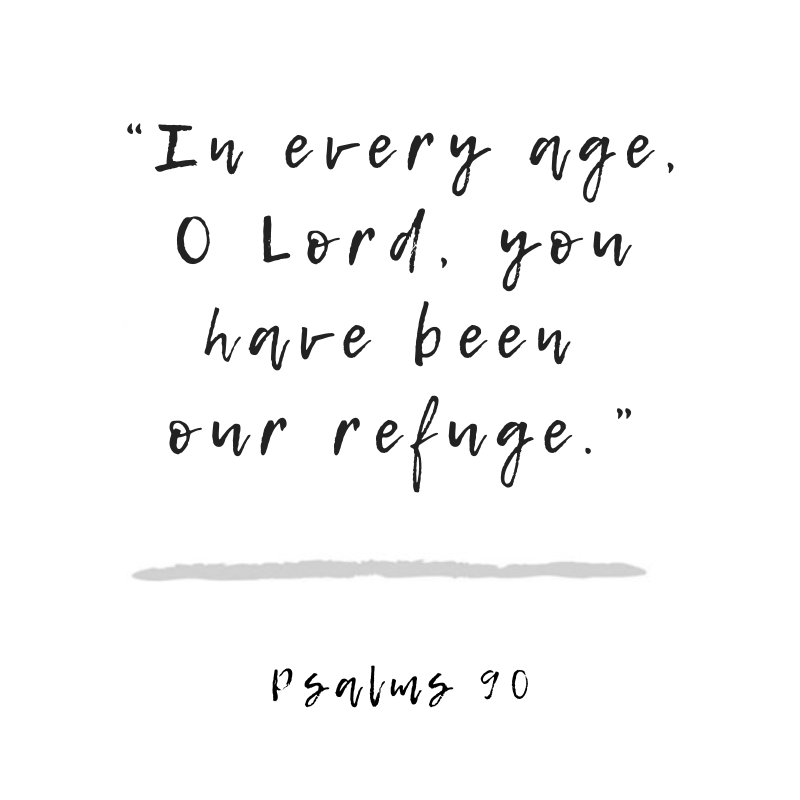 “In every age,
O Lord, you
have been
our refuge.”
Psalms 90